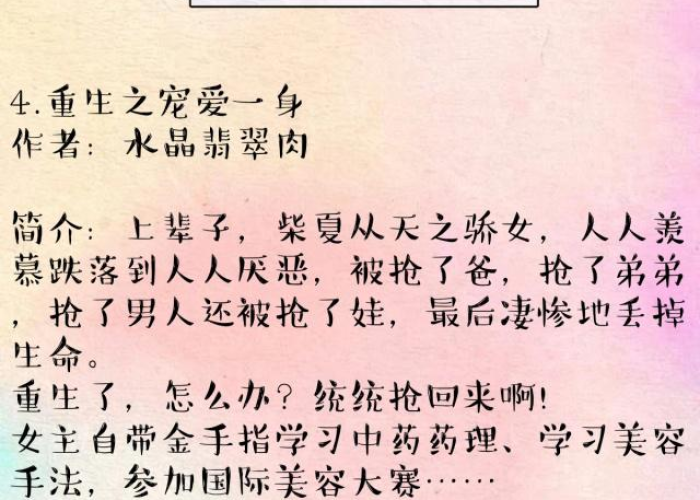 4.重生之宠爱一身
作者：水晶翡翠肉
简介：上辈子，柴夏从天之骄女，人人羡
慕跌落到人人厌恶，被抢了爸，抢了弟弟
，抢了男人还被抢了娃，最后凄惨地丢掉
生命。
重生了，怎么办？统统抢回来啊！
女主自带金手指学习中药药理、学习美容
手法，参加国际美容大赛……